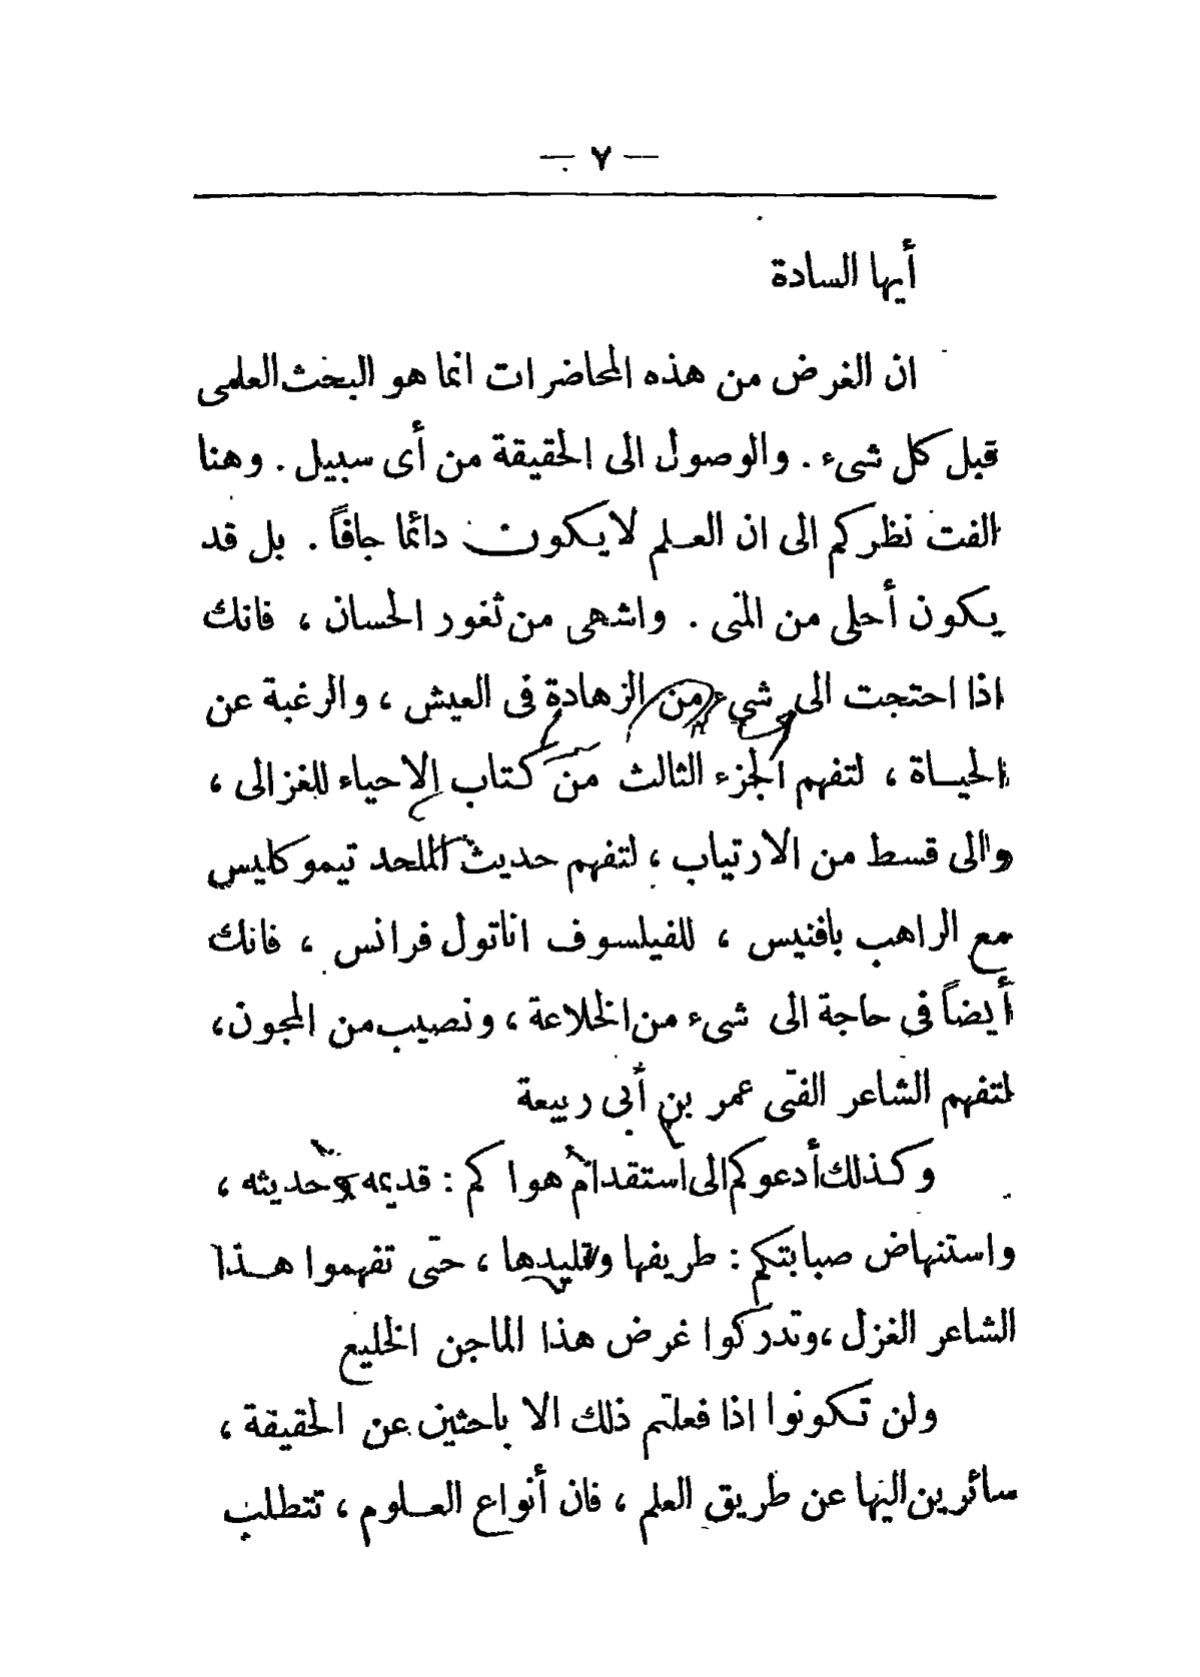 — ٧ —
أيها السادة
ان الغرض من هذه المحاضرات انما هو البحث العلمى
قبل كل شىء . والوصول الى الحقيقة من أى سبيل . وهنا
الفت نظركم الى ان العلم لا يكون دائما جافاً . بل قد
يكون أحلى من المنى . واشهى من ثغور الحسان ، فانك
اذا احتجت الى شىء من الزهادة فى العيش ، والرغبة عن
الحياة ، لتفهم الجزء الثالث من كتاب الاحياء للغزالى ،
والى قسط من الارتياب ، لتفهم حديث الملحد تيموكليس
مع الراهب بافنيس ، للفيلسوف اناتول فرانس ، فانك
أيضاً فى حاجة الى شىء من الخلاعة ، ونصيب من المجون ،
لتفهم الشاعر الفتى عمر بن أبى ربيعة
وكذلك أدعوكم الى استقدام هواكم : قديمه وحديثه ،
واستنهاض صبابتكم : طريفها وتليدها ، حتى تفهموا هذا
الشاعر الغزل ، وتدركوا غرض هذا الماجن الخليع
ولن تكونوا اذا فعلتم ذلك الا باحثين عن الحقيقة ،
سائرين اليها عن طريق العلم ، فان أنواع العلوم ، تتطلب